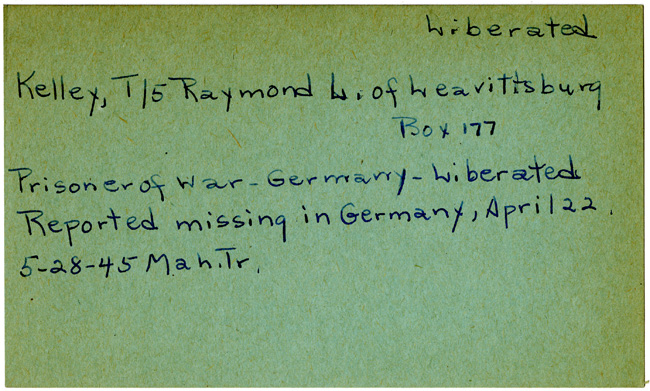 Liberated
Kelley, T/5 Raymond L. of Leavittsburg
Box 177
Prisoner of War - Germany - Liberated
Reported missing in Germany, April 22.
5-28-45 Mah. Tr.